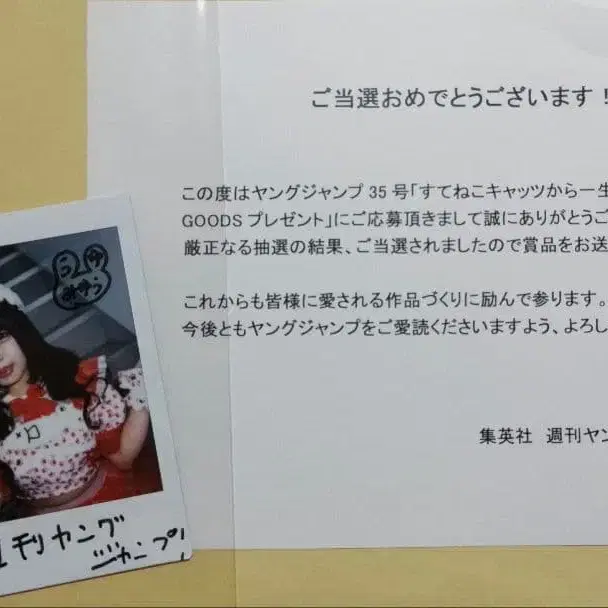 ご当選おめでとうございます！
この度はヤングジャンプ 35 号「すてねこキャッツから一生
GOODS プレゼント」にご応募頂きまして誠にありがとうご
厳正なる抽選の結果、ご当選されましたので賞品をお送
これからも皆様に愛される作品づくりに励んで参ります。
今後ともヤングジャンプをご愛読くださいますよう、よろし
集英社 週刊ヤン
刊ヤング
ジャンプ！